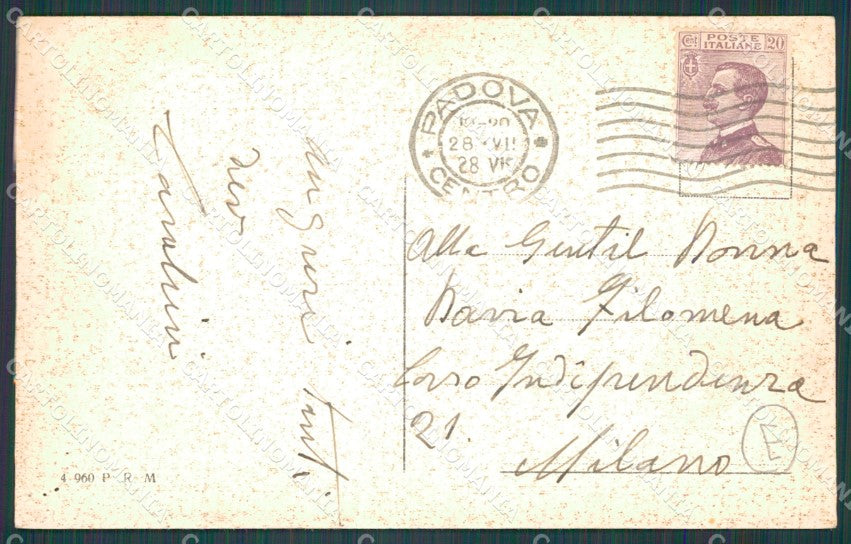 Cent 20
POSTE
ITALIANE
PADOVA
19-20
28 VII
28 VI
CENTRO
Auguri
Alla Gentil Donna
Davia Filomena
Corso Indipendenza
21.
Milano
4 960 P R M
CARTOLINOMANIA